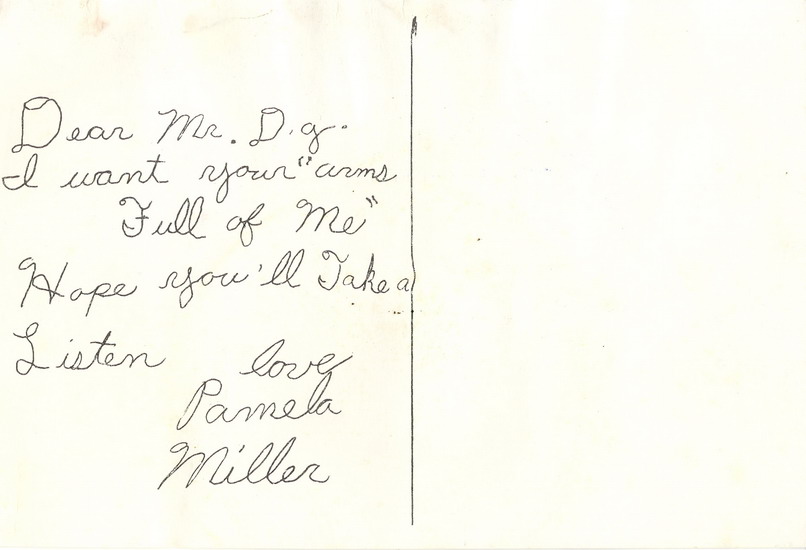 Dear Mr. D.g.
I want your "arms
Full of Me"
Hope you'll Take a
Listen love
Pamela
Miller